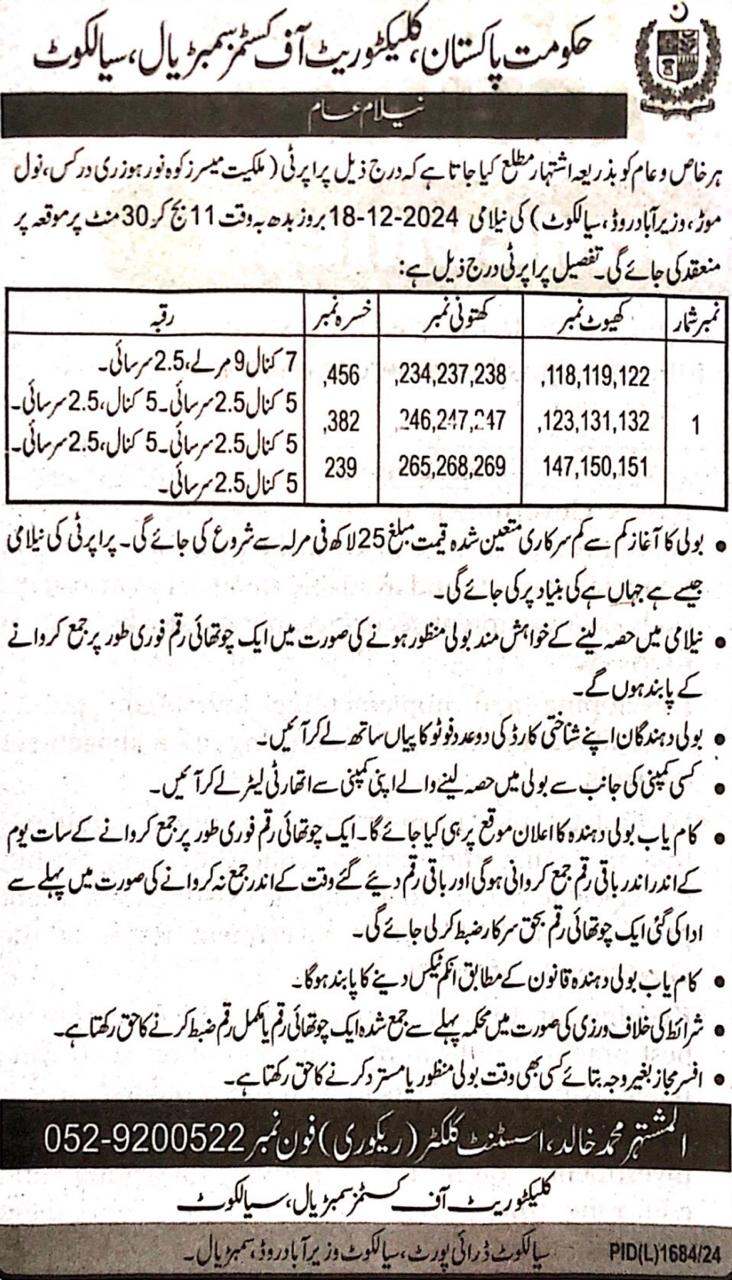 حکومت پاکستان، کلیکٹوریٹ آف کسٹمز سمبڑیال، سیالکوٹ
نیلام عام
ہر خاص و عام کو بذریعہ اشتہار مطلع کیا جاتا ہے کہ درج ذیل پراپرٹی (ملکیت میسرز کوہ نور ہوزری ورکس، نول
موڑ، وزیر آباد روڈ، سیالکوٹ) کی نیلامی 2024-12-18 بروز بدھ بہ وقت 11 بج کر 30 منٹ پر موقعہ پر
منعقد کی جائے گی۔ تفصیل پراپرٹی درج ذیل ہے:
نمبر شمار کھیوٹ نمبر کھتونی نمبر خسرہ نمبر رقبہ
118,119,122, 234,237,238, 456, 7 کنال 9 مرلے، 2.5 سرسائی۔
1 123,131,132, 246,247,247, 382, 5 کنال 2.5 سرسائی۔ 5 کنال، 2.5 سرسائی۔
147,150,151 265,268,269 239 5 کنال 2.5 سرسائی۔ 5 کنال، 2.5 سرسائی۔
5 کنال 2.5 سرسائی۔
• بولی کا آغاز کم سے کم سرکاری متعین شدہ قیمت مبلغ 25 لاکھ فی مرلہ سے شروع کی جائے گی۔ پراپرٹی کی نیلامی
جیسے ہے جہاں ہے کی بنیاد پر کی جائے گی۔
• نیلامی میں حصہ لینے کے خواہش مند بولی منظور ہونے کی صورت میں ایک چوتھائی رقم فوری طور پر جمع کروانے
کے پابند ہوں گے۔
• بولی دہندگان اپنے شناختی کارڈ کی دو عدد فوٹو کاپیاں ساتھ لے کر آئیں۔
• کسی کمپنی کی جانب سے بولی میں حصہ لینے والے اپنی کمپنی سے اتھارٹی لیٹر لے کر آئیں۔
• کام یاب بولی دہندہ کا اعلان موقع پر ہی کیا جائے گا۔ ایک چوتھائی رقم فوری طور پر جمع کروانے کے سات یوم
کے اندر اندر باقی رقم جمع کروانی ہوگی اور باقی رقم دیئے گئے وقت کے اندر جمع نہ کروانے کی صورت میں پہلے سے
ادا کی گئی ایک چوتھائی رقم بحق سرکار ضبط کر لی جائے گی۔
• کام یاب بولی دہندہ قانون کے مطابق انکم ٹیکس دینے کا پابند ہوگا۔
• شرائط کی خلاف ورزی کی صورت میں محکمہ پہلے سے جمع شدہ ایک چوتھائی رقم یا مکمل رقم ضبط کرنے کا حق رکھتا ہے۔
• افسر مجاز بغیر وجہ بتائے کسی بھی وقت بولی منظور یا مسترد کرنے کا حق رکھتا ہے۔
المشتہر محمد خالد، اسسٹنٹ کلکٹر (ریکوری) فون نمبر 052-9200522
کلیکٹوریٹ آف کسٹمز سمبڑیال، سیالکوٹ
سیالکوٹ ڈرائی پورٹ، سیالکوٹ وزیر آباد روڈ، سمبڑیال۔ PID(L)1684/24